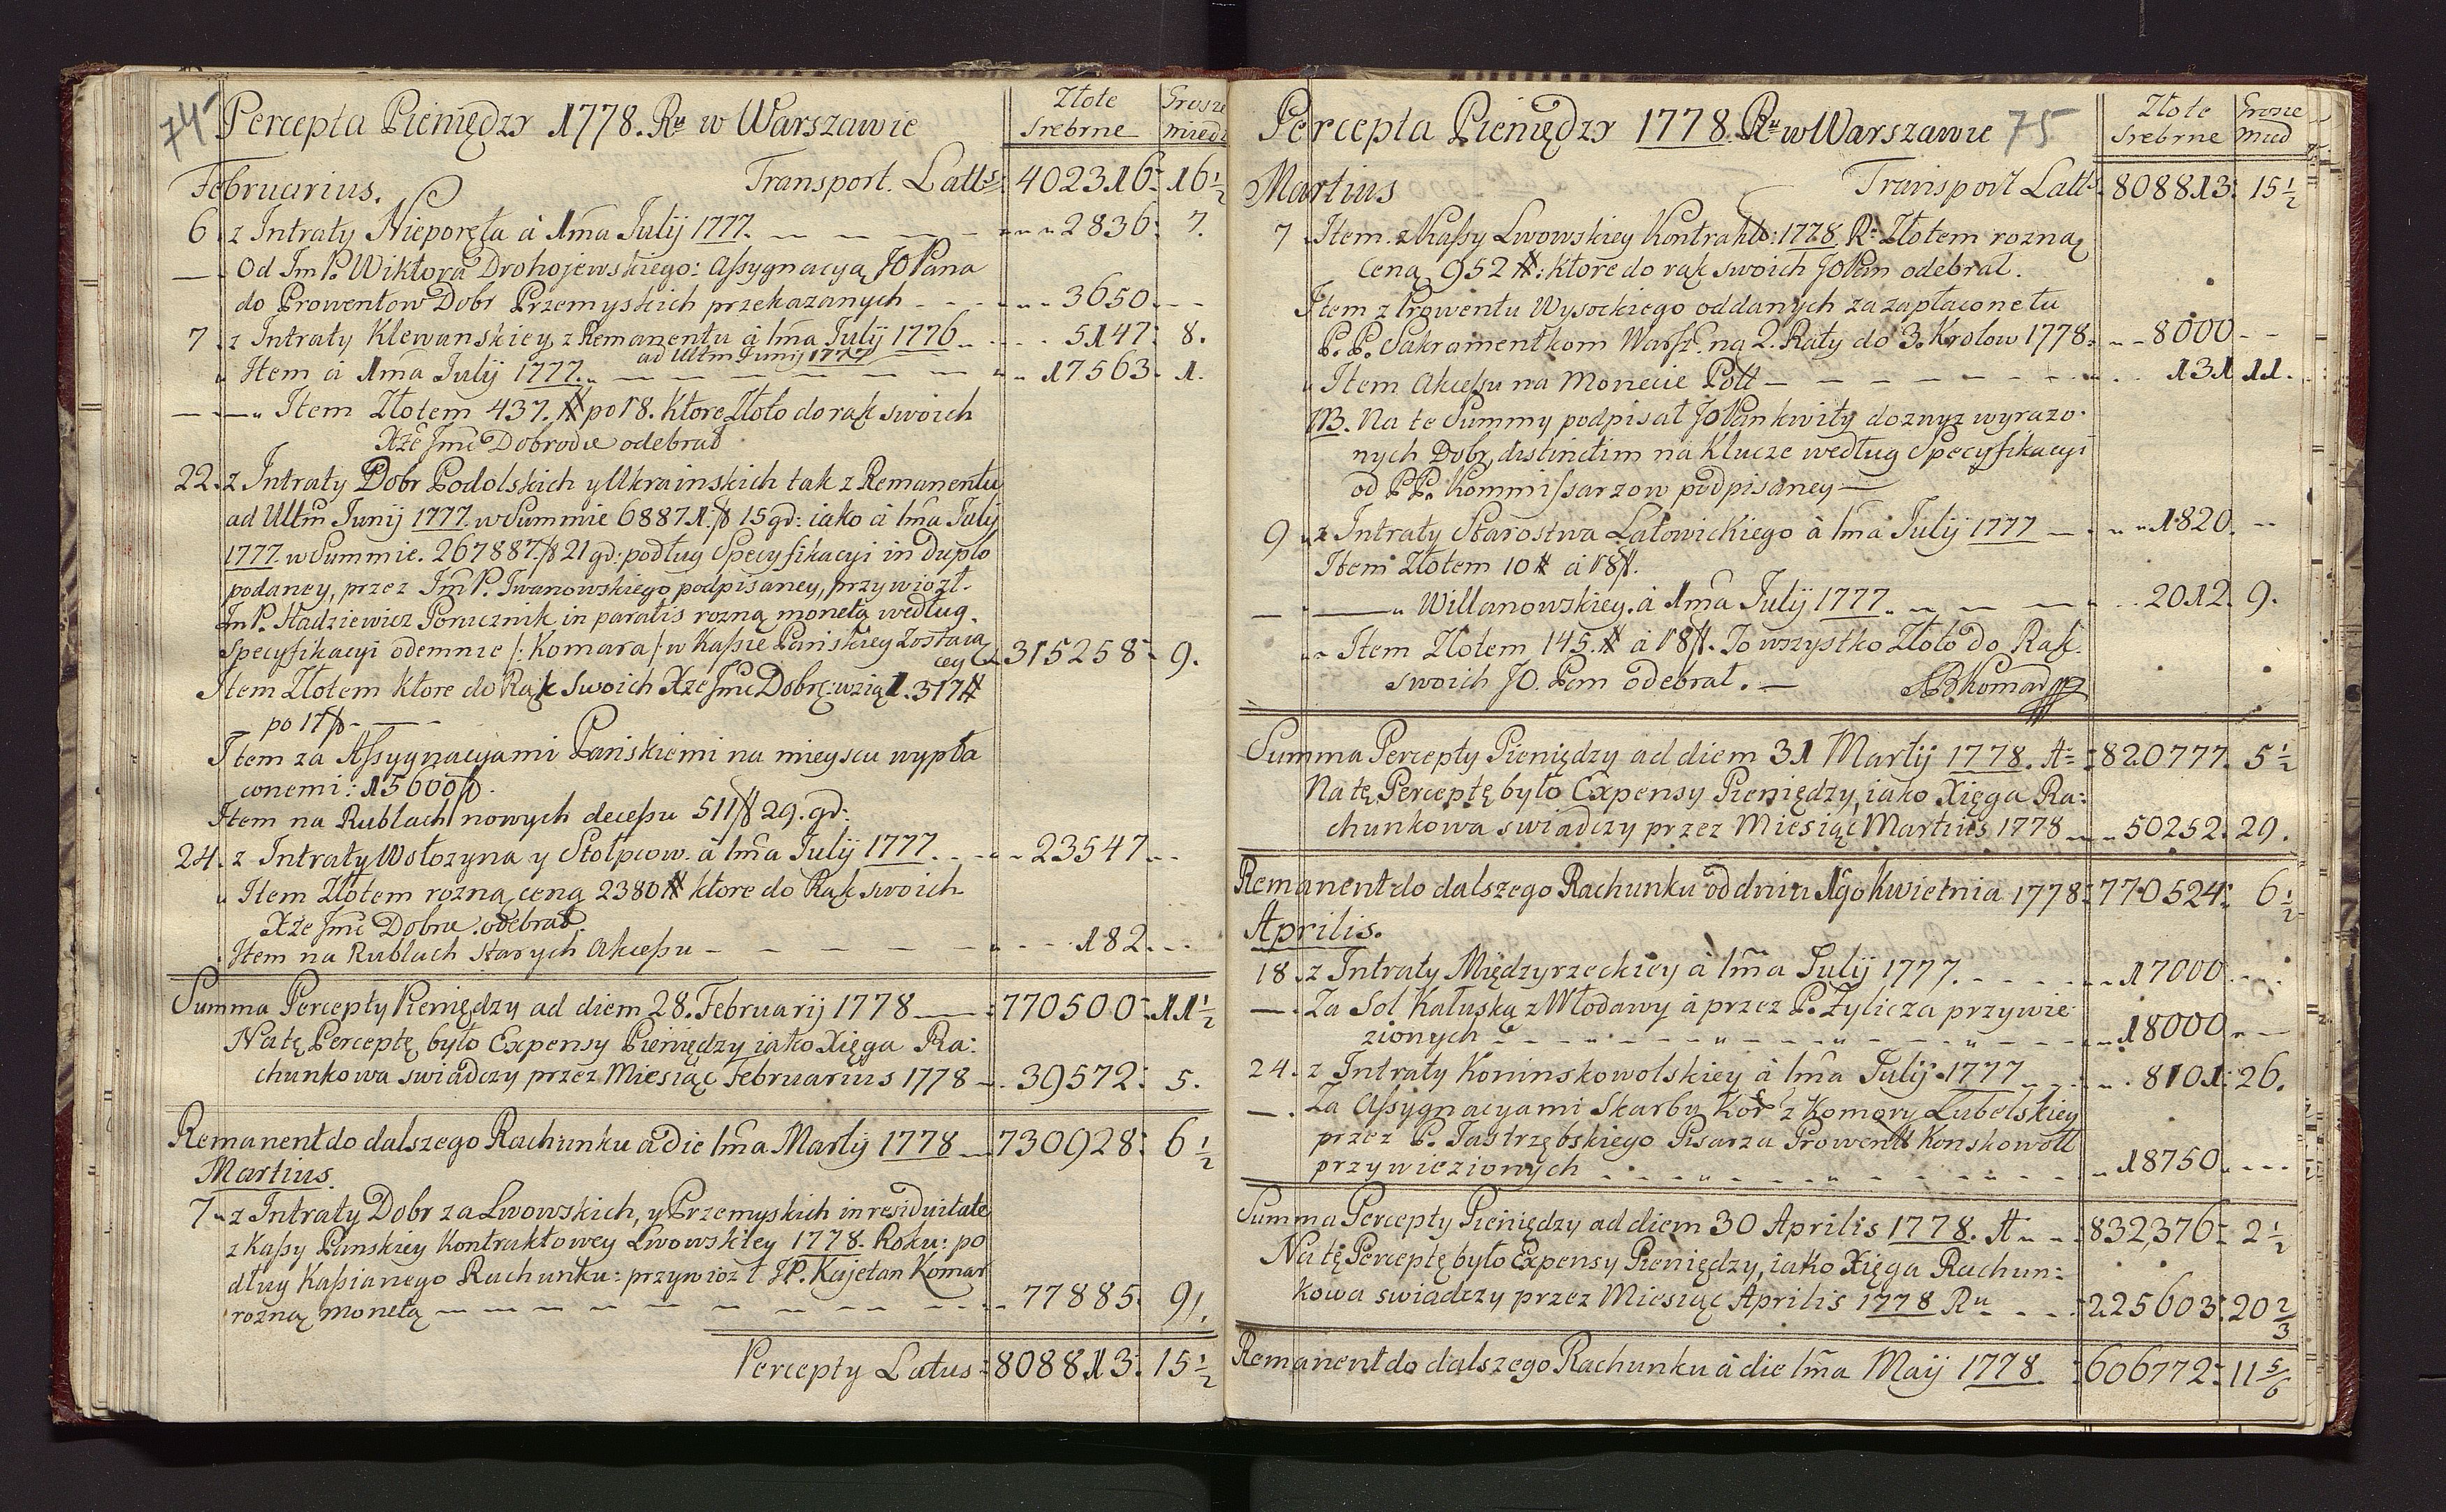 74
Percepta Pieniędzy 1778. Ru w Warszawie
Złote Srebrne
Grosze miedz
Februarius. Transport. Latts: 402316: 16 1/2
6. z Intraty Nieporęta à 1ma Julij 1777. 2836: 7.
Od Jm P. Wiktora Drohojewskiego: Assygnacyą JO Pana
do Prowentow Dobr Przemyskich przekazanych 3650
7. z Intraty Klewanskiey z Remanentu à 1ma Julij 1776 5147: 8.
ad Ultm Junij 1777
Item à 1ma Julij 1777. 17563. 1.
Item Złotem 437. # po 18. ktore Złoto do rąk swoich
Xże Jmć Dobrodie odebrał
22. z Intraty Dobr Podolskich y Ukrainskich tak z Remanentu
ad Ultm Junij 1777. w Summie 68871. f 15 gd: iako à 1ma Julij
1777. w Summie. 267887. f 21 gd. podług Specyfikacyi in duplo
podaney, przez Jm P. Iwanowskiego podpisaney, przywiozł.
Jm P. Hadziewicz Ponicznik in paratis rozną monetą według
Specyfikacyi odemnie /: Komara / w Kassie Panskiey zostaią
cey 315258: 9.
Item Złotem ktore do Rąk Swoich Xże Jmć Dobr: wziął. 317 #
po 17 f
Item za Assygnacyami Pańskiemi na mieyscu wypła
conemi: 15600 f.
Item na Rublach nowych decessu 511 f 29. gd:
24. z Intraty Wołozyna y Stołpcow. à 1ma Julij 1777. 23547
Item Złotem rozną ceną 2380 # ktore do Rąk swoich
Xże Jmć Dobrie odebrał.
Item na Rublach starych Akcessu 182.
Summa Percepty Pieniędzy ad diem 28. Februarij 1778 770500: 11 1/2
Na tę Perceptę było Expensy Pieniędzy iako Xięga Ra:
chunkowa swiadczy przez Miesiąc Februarius 1778 39572: 5.
Remanent do dalszego Rachunku à die 1ma Martij 1778 730928: 6 1/2
Martius.
7 z Intraty Dobr za Lwowskich, y Przemyskich in residuitate
z Kassy Panskiey Kontraktowey Lwowskiey 1778. Roku: po
dług Kassianego Rachunku: przywiozł JP. Kajetan Komar
rozną monetą 77885. 9.
Percepty Latus: 808813: 15 1/2
Percepta Pieniędzy 1778. Ru w Warszawie 75
Złote Srebrne
Grosze mied
Martius Transport Latts. 808813: 15 1/2
7 Item z Kassy Lwowskiey Kontrakto: 1778. R: Złotem rozną
ceną 952 #: ktore do rąk swoich JO Pan odebrał.
Item z Prowentu Wysockiego oddanych za zapłacone tu
P. P. Sakramentkom Warsz. na 2. Raty do 3. Krolow 1778. 8000
Item Akcessu na Monecie Poll 131 11.
NB. Na te Summy podpisał JO Pan kwity do znyz wyrazo.
nych Dobr, distinctim na Klucze według Specyfikacyi
od PP. Kommissarzow podpisaney
9 z Intraty Starostwa Latowickiego à 1ma Julij 1777 1820.
Item Złotem 10 # à 18 f.
Willanowskiey. à 1ma Julij 1777. 2012. 9.
Item Złotem 145. # à 18 f. To wszystko Złoto do Rąk
swoich JO. Pan odebrał. Komar
Summa Percepty Pieniędzy ad diem 31 Martij 1778. A: 820777. 5 1/2
Na tę Perceptę było Expensy Pieniędzy, iako Xięga Ra:
chunkowa swiadczy przez Miesiąc Martius 1778 50252. 29.
Remanent do dalszego Rachunku od dnia 1go Kwietnia 1778: 770524: 6 1/2
Aprilis.
18. z Intraty Międzyrzeckiey à 1ma Julij 1777. 17000
Za Sol Kałuską z Włodawy à przez P. Żylicza przywie
zionych 18000
24. z Intraty Koninskowolskiey à 1ma Julij 1777 8101: 26.
Za Assygnacyami Skarbu Kor: z Komory Lubelskiey
przez P. Jastrzębskiego Pisarza Prowent Konskowoll
przywiezionych 18750.
Summa Percepty Pieniędzy ad diem 30 Aprilis 1778. A 832,376: 2 1/2
Na tę Perceptę było Expensy Pieniędzy, iako Xięga Rachun:
kowa swiadczy przez Miesiąc Aprilis 1778 Ru 225603: 20 2/3
Remanent do dalszego Rachunku à die 1ma Maij 1778. 606772: 11 5/6